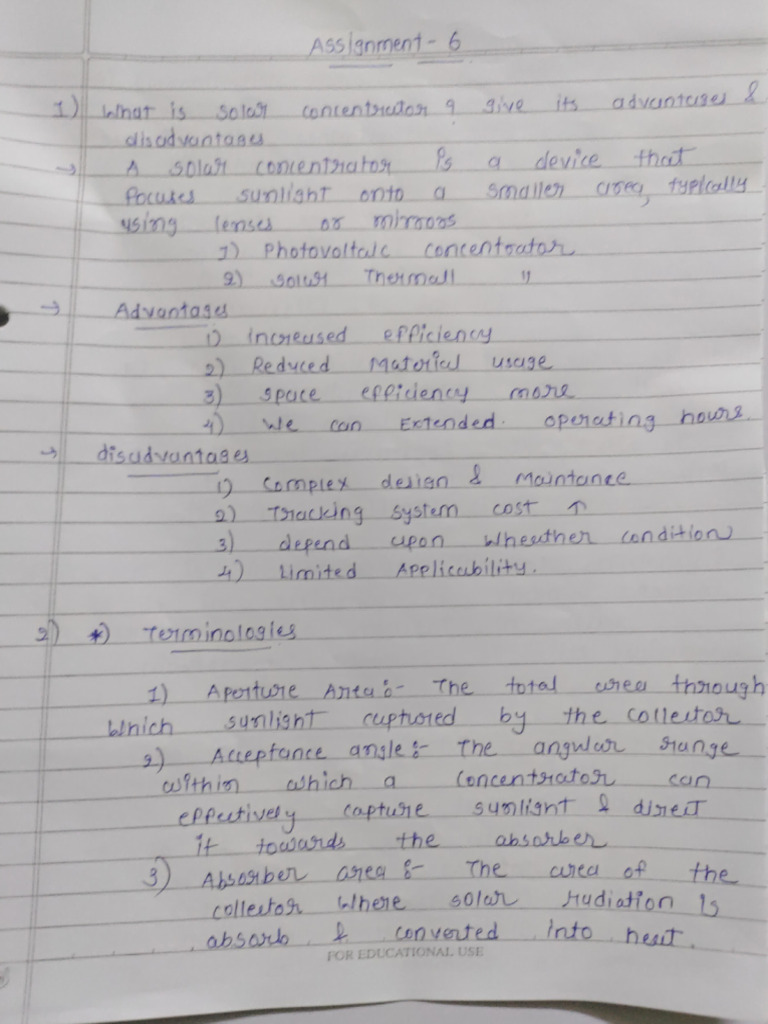 Assignment - 6
1) What is solar concentrator ? give its advantages &
disadvantages
→ A solar concentrator is a device that
focuses sunlight onto a smaller area, typically
using lenses or mirrors
1) Photovoltaic concentrator
2) solar Thermall "
→ Advantages
1) increased efficiency
2) Reduced Material usage
3) space efficiency more
4) We can Extended. operating hours.
→ disadvantages
1) Complex design & Maintance
2) Tracking system cost ↑
3) depend upon wheather condition
4) Limited Applicability.
2) *) Terminologies
1) Aperture Area :- The total area through
Which sunlight captured by the collector
2) Acceptance angle :- The angular range
within which a concentrator can
effectively capture sunlight & direct
it towards the absorber
3) Absorber area :- The area of the
collector where solar radiation is
absorb & converted into heat.
FOR EDUCATIONAL USE